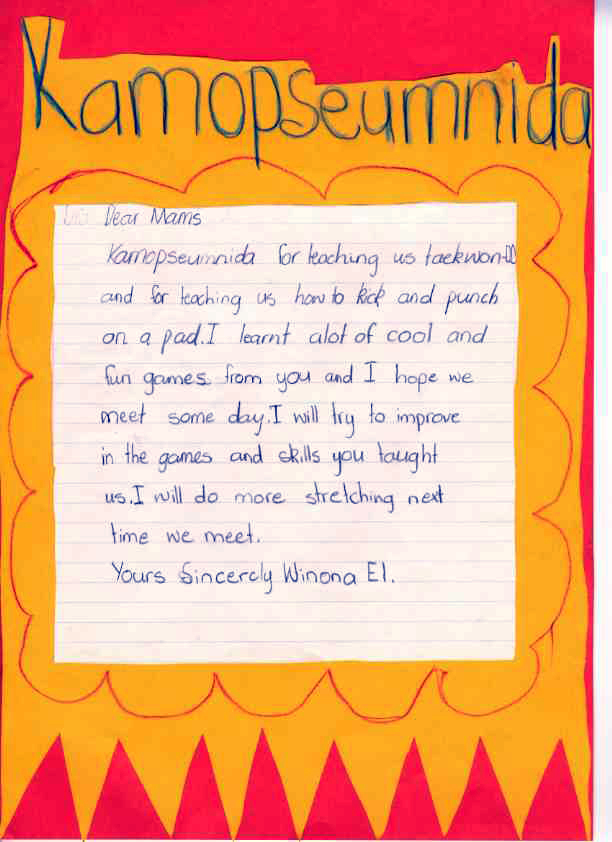 Kamopseumnida
Dear Mams
Kamopseumnida for teaching us taekwon-DO
and for teaching us how to kick and punch
on a pad. I learnt alot of cool and
fun games from you and I hope we
meet some day. I will try to improve
in the games and skills you taught
us. I will do more stretching next
time we meet.
Yours Sincerely Winona El.